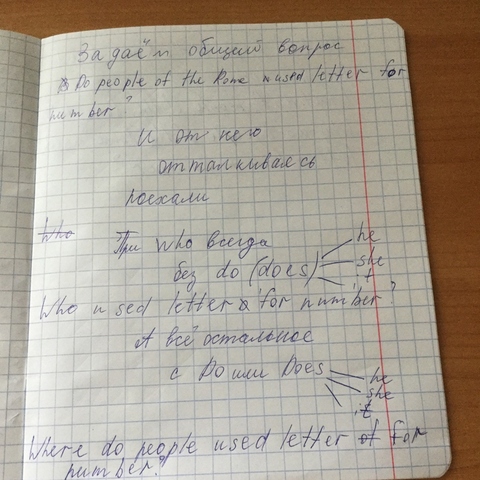 Задаём общий вопрос
Do people of the Rome used letter for
number?
И от него
отталкиваясь
поехали
Who
При Who всегда
без do (does) he
she
it
Who used letter for number?
А всё остальное
с Do или Does he
she
it
Where do people used letter of for
number?